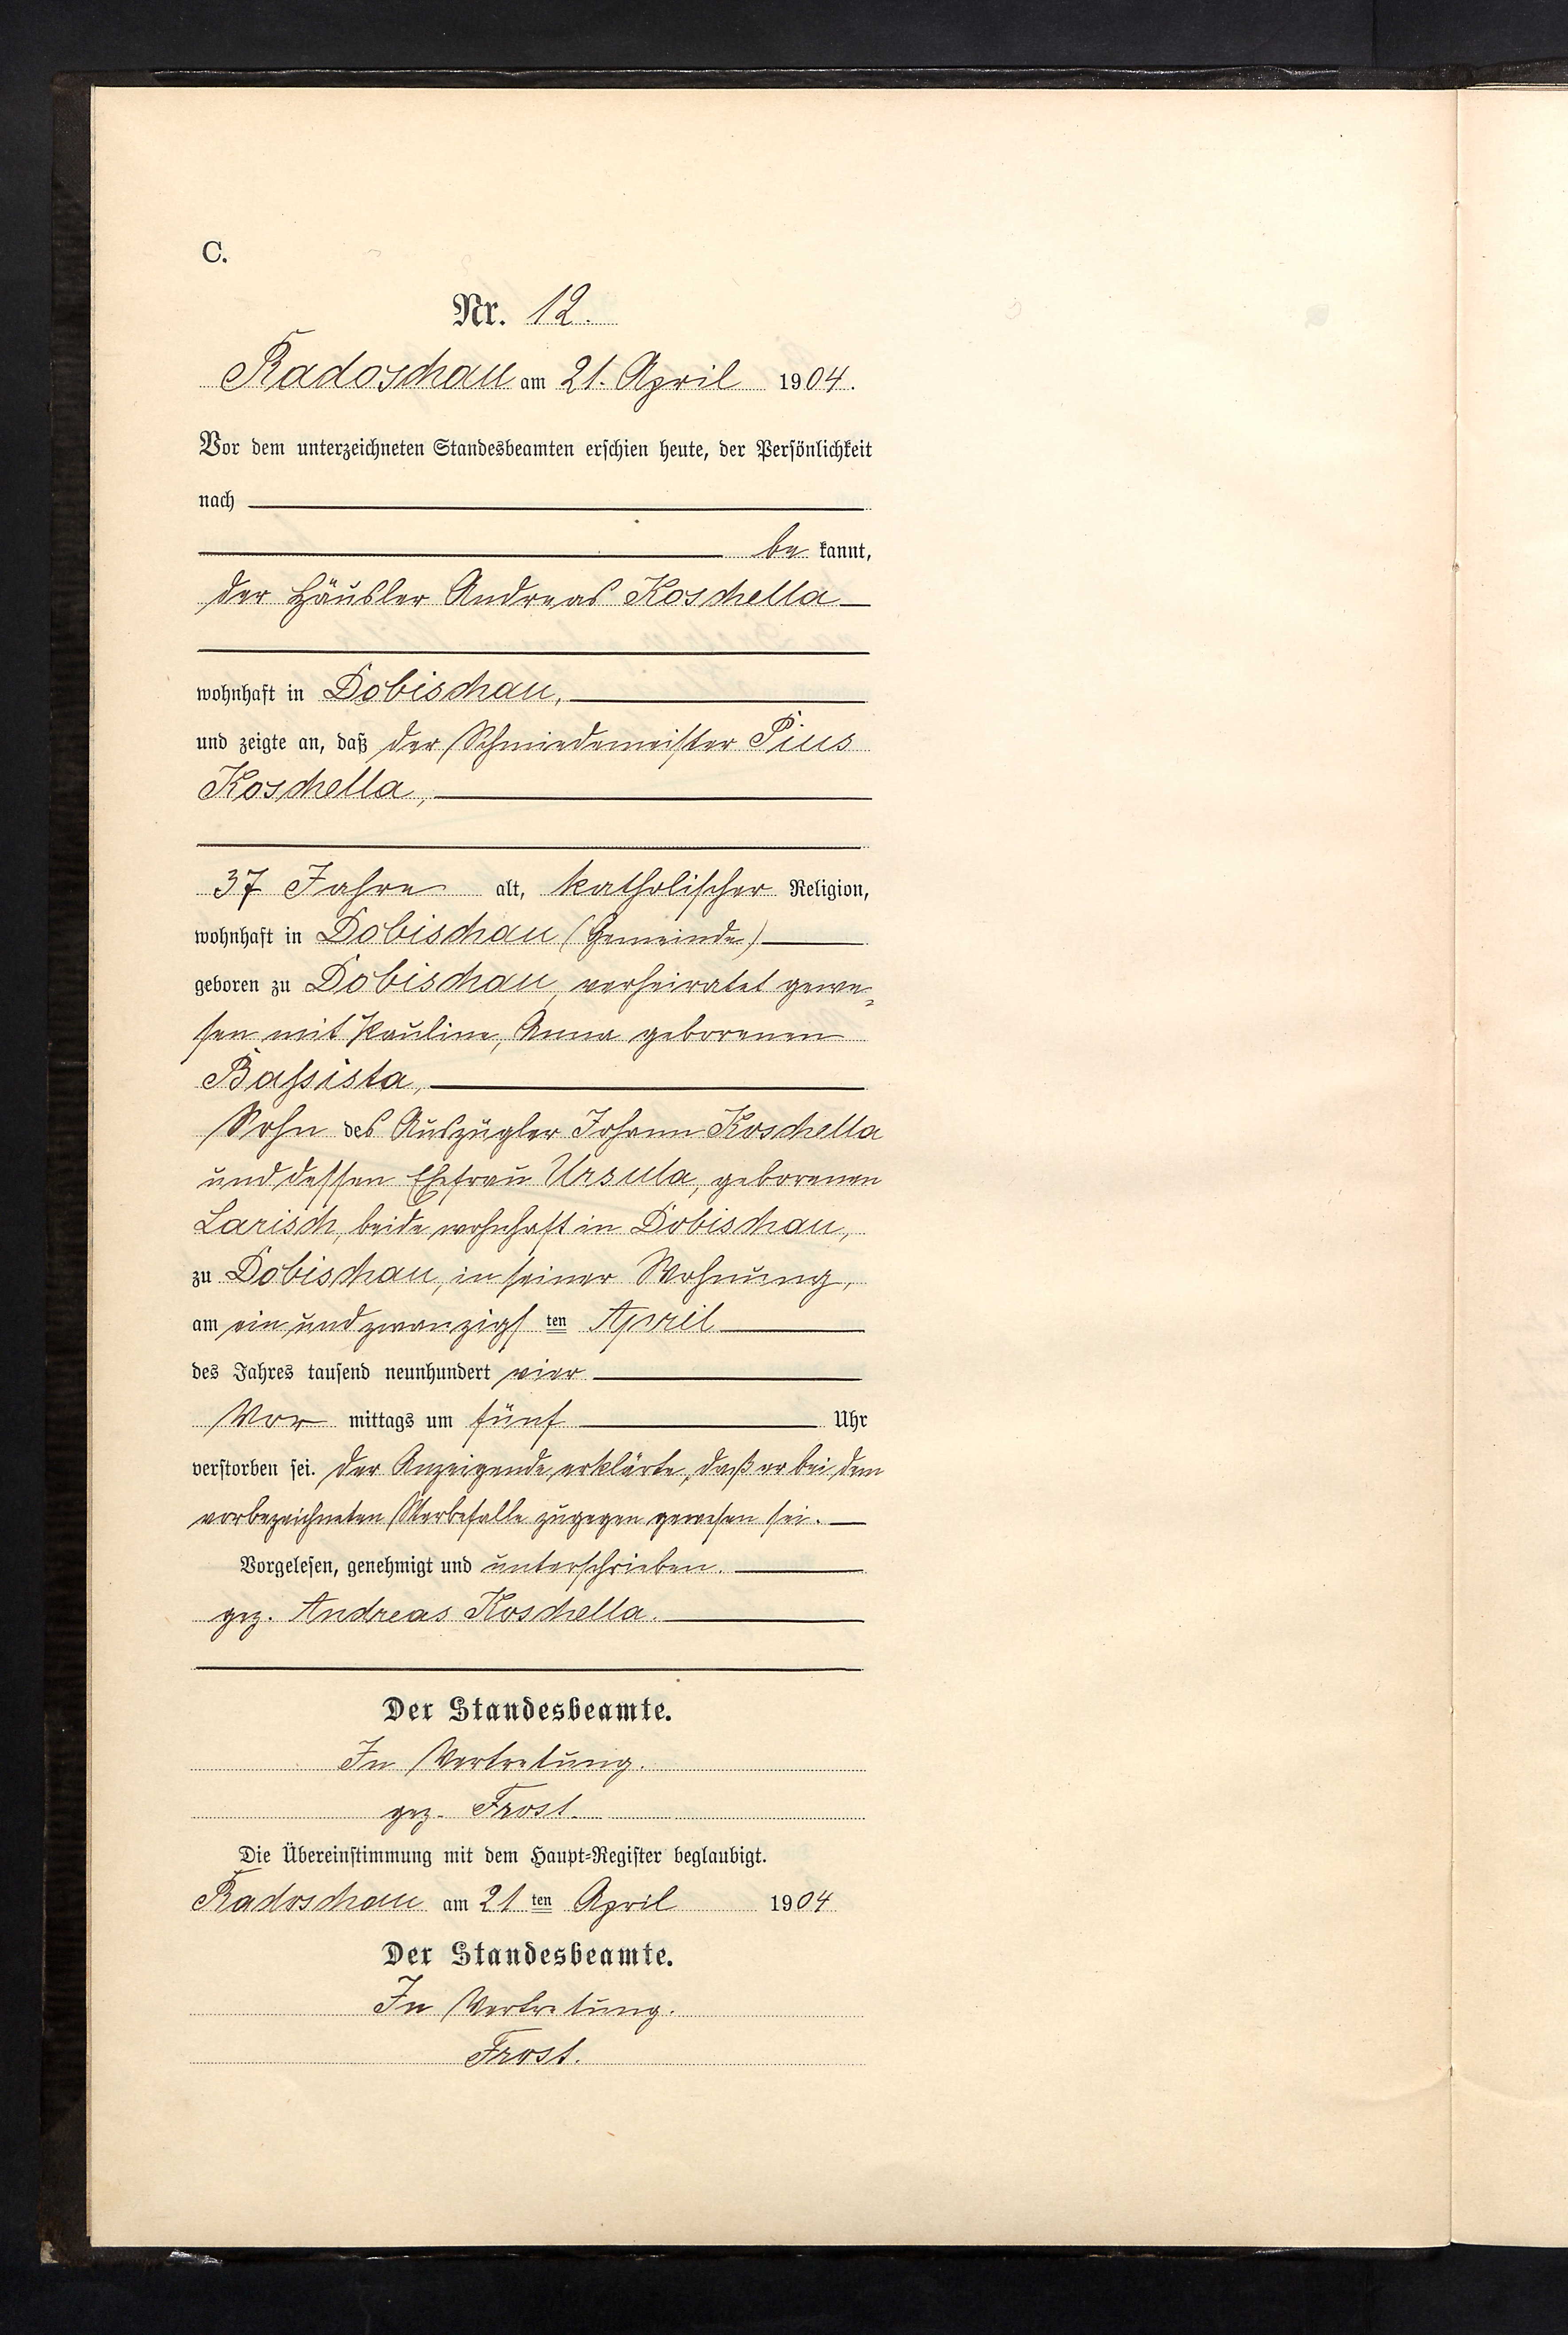 C.
Nr. 12.
Radoschau am 21. April 1904.
Vor dem unterzeichneten Standesbeamten erschien heute, der Persönlichkeit
nach
be kannt,
der Häusler Andreas Koschella
wohnhaft in Dobischau,
und zeigte an, daß der Schmiedemeister Pius
Koschella,
37 Jahre alt, katholischer Religion,
wohnhaft in Dobischau (Gemeinde)
geboren zu Dobischau, verheiratet gewe=
sen mit Pauline, Anna geborenen
Baßista,
Sohn des Auszügler Johann Koschella
und dessen Ehefrau Ursula, geborenen
Larisch, beide wohnhaft in Dobischau,
zu Dobischau, in seiner Wohnung,
am ein und zwanzigs ten April
des Jahres tausend neunhundert vier
Vor mittags um fünf Uhr
verstorben sei. Der Anzeigende erklärte, daß er bei dem
vorbezeichneten Sterbefalle zugegen gewesen sei.
Vorgelesen, genehmigt und unterschrieben.
gez. Andreas Koschella.
Der Standesbeamte.
In Vertretung.
gez. Frost.
Die Übereinstimmung mit dem Haupt=Register beglaubigt.
Radoschau am 21 ten April 1904
Der Standesbeamte.
In Vertretung.
Frost.